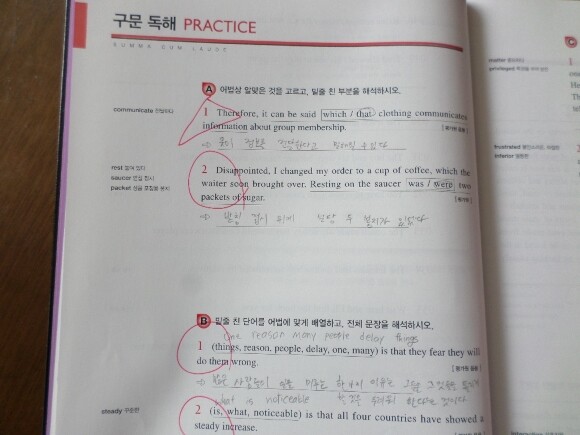 구문 독해 PRACTICE
SUMMA CUM LAUDE
A 어법상 알맞은 것을 고르고, 밑줄 친 부분을 해석하시오.
communicate 전달하다
1 Therefore, it can be said which / that clothing communicates
information about group membership. [평가원 응용]
⇒ 옷이 정보를 전달한다고 말해질 수 있다
rest 놓여 있다
saucer 받침 접시
packet
2 Disappointed, I changed my order to a cup of coffee, which the
waiter soon brought over. Resting on the saucer was / were two
packets of sugar. [평가원]
⇒ 받침 위에 설탕 두 봉지가 있었다
B 밑줄 친 단어를 어법에 맞게 배열하고, 전체 문장을 해석하시오.
One reason many people delay things
1 (things, reason, people, delay, one, many) is that they fear they will
do them wrong. [평가원 응용]
⇒ 많은 사람들이 일을 미루는 하나의 이유는 그들이
what is noticeable
steady 꾸준한
2 (is, what, noticeable) is that all four countries have showed a
steady increase.
matter
privileged
frustrated
inferior 열등한
1
2